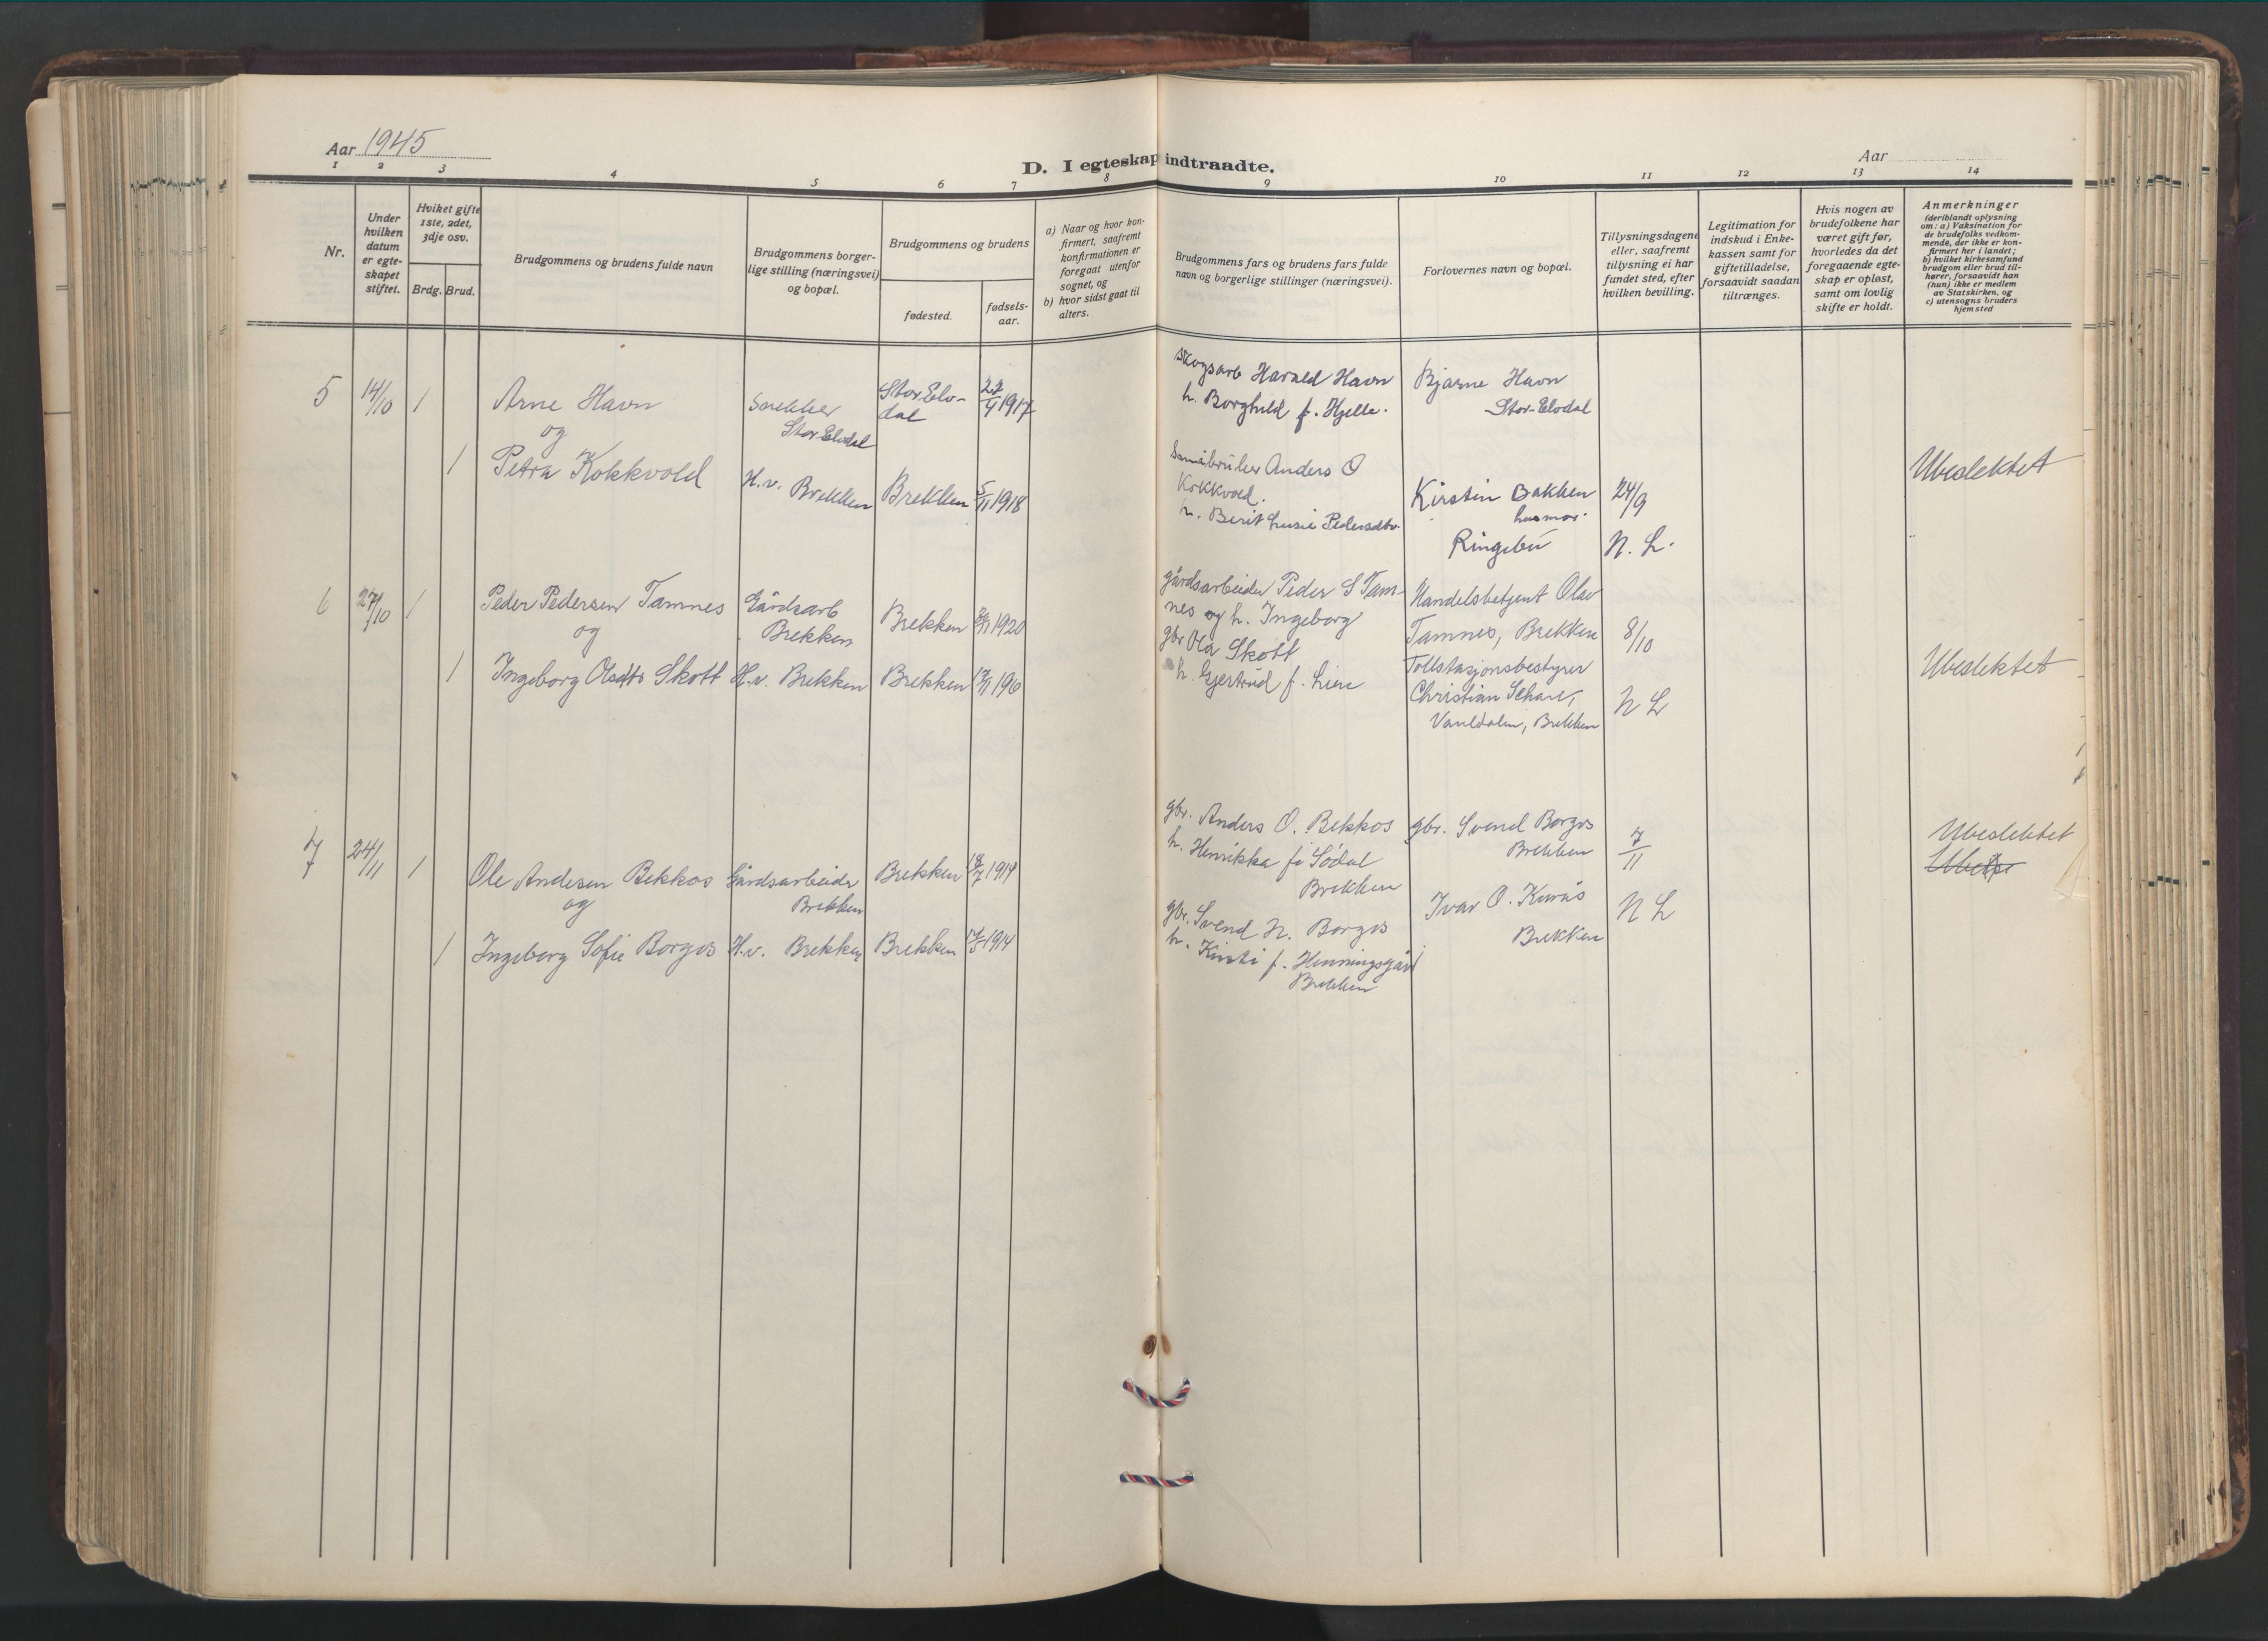 Aar 1945
D. I egteskap indtraadte.
Aar
1 2 3 4 5 6 7 8 9 10 11 12 13 14
Nr.
Under
hvilken
datum
er egte-
skapet
stiftet.
Hviket gifte
1ste, 2det,
3dje osv.
Brdg. Brud.
Brudgommens og brudens fulde navn
Brudgommens borger-
lige stilling (næringsvei)
og bopæl.
Brudgommens og brudens
fødested.
fødsels-
aar.
a) Naar og hvor kon-
firmert, saafremt
konfirmationen er
foregaat utenfor
sognet, og
b) hvor sidst gaat til
alters.
Brudgommens fars og brudens fars fulde
navn og borgerlige stillinger (næringsvei).
Forlovernes navn og bopæl.
Tillysningsdagene
eller, saafremt
tillysning ei har
fundet sted, efter
hvilken bevilling.
Legitimation for
indskud i Enke-
kassen samt for
giftetilladelse,
forsaavidt saadan
tiltrænges.
Hvis nogen av
brudefolkene har
været gift før,
hvorledes da det
foregaaende egte-
skap er opløst,
samt om lovlig
skifte er holdt.
Anmerkninger
(deriblandt oplysning
om: a) Vaksination for
de brudefolks vedkom-
mende, der ikke er kon-
firmert her i landet;
b) hvilket kirkesamfund
brudgom eller brud til-
hører, forsaavidt han
(hun) ikke er medlem
av Statskirken, og
c) utensogns bruders
hjemsted
5 14/10 1
Arne Havn
og
1 Petra Kokkvold
Snekker
Stor Elvdal
H.v. Brekken
Stor Elv-
dal
Brekken
1917
5/11 1918
Skogsarb Harald Havn
h. Borghild f. Hjelle.
Småbruker Anders O
Kokkvold.
h. Berit Lusie Pedersdtr.
Bjarne Havn
Stor-Elvdal
Kirstin Bakken
husmor
Ringebu
24/9
N. L.
Ubeslektet
6 27/10 1
Peder Pedersen Tamnes
og
1 Ingeborg Olsdtr Skott
Gårdsarb
Brekken
H.v. Brekken
Brekken
Brekken
1920
gårdsarbeider Peder S Tam-
nes og h. Ingeborg
gbr Ola Skott
h. Gjertrud f. Lien
Handelsbetjent Olav
Tamnes, Brekken
Tollstasjonsbestyrer
Christian
Vauldalen, Brekken
8/10
N L
Ubeslektet
7 24/11 1
Ole Andersen Bekkos
og
1 Ingeborg Sofie Borgos
Gårdsarbeider
Brekken
H.v. Brekken
Brekken
Brekken
18/7 1919
1914
gbr. Anders O. Bekkos
h. Henrikka f. Sødal
Brekken
gbr. Svend H. Borgos
h. Kirsti f. Henningsgård
Brekken
gbr. Svend Borgos
Brekken
Ivar O. Kurås
Brekken
7/11
N L
Ubeslektet